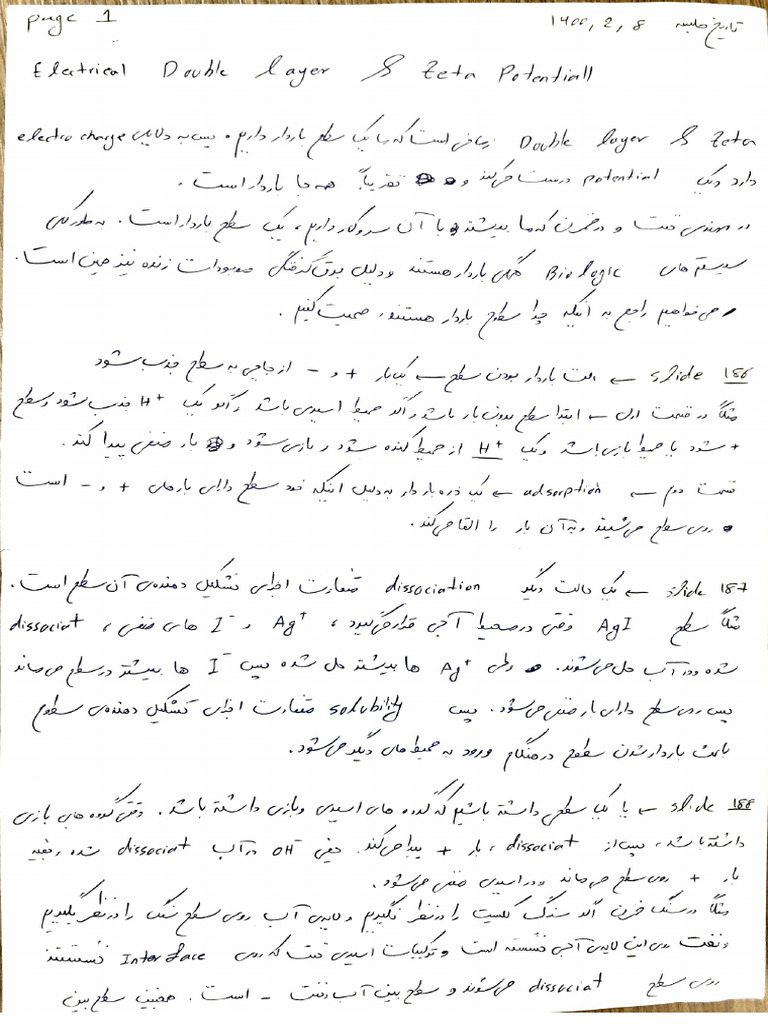 page 1
تاریخ جلسه 1400, 2, 8
Electrical Double layer & Zeta Potentiall
Double layer & Zeta زمانی است که ما یک سطح باردار داریم. پس به دلایلی electro charge
دارد و یک potential درست می‌کند و تقریباً همه جا باردار است.
در مهندسی نفت و در مخزن که ما بیشتر با آن سروکار داریم، یک سطح باردار است. به طور کلی
سیستم های Biologic همگی باردار هستند و دلیل برق گرفتگی موجودات زنده نیز همین است.
می‌خواهیم راجع به اینکه چرا سطوح باردار هستند، صحبت کنیم.
slide 186 ← علت باردار بودن سطح ← یک بار + و - از جایی به سطح جذب شود
مثلاً در قسمت اول ← ابتدا سطح بدون بار باشد و اگر محیط اسیدی باشد و اگر یک H+ جذب شود و سطح
+ شود یا محیط بازی باشد و یک H+ از محیط کنده شود و بازی شود و بار منفی پیدا کند.
قسمت دوم ← adsorption ← یک ذره باردار به دلیل اینکه خود سطح دارای بارهای + و - است
روی سطح می‌شیند و به آن بار را القا می‌کند.
slide 187 ← یک حالت دیگر dissociation متفاوت اجزای تشکیل دهنده‌ی آن سطح است.
مثلاً سطح AgI وقتی در محیط آبی قرار می‌گیرد، Ag+ و I- های منفی، dissociat
شده و در آب حل می‌شوند. ولی Ag+ ها بیشتر حل شده پس I- ها بیشتر در سطح می‌ماند
پس روی سطح دارای بار منفی می‌شود. پس solubility متفاوت اجزای تشکیل دهنده‌ی سطوح
باعث باردار شدن سطوح در هنگام ورود به محیط‌های دیگر می‌شود.
slide 188 ← یا یک سطحی داشته باشیم که گروه های اسیدی و بازی داشته باشد. وقتی گروه های بازی
داشته باشد، پس از dissociat، بار + پیدا می‌کند. یعنی OH- در آب dissociat شده و بقیه
بار + روی سطح می‌ماند و در اسیدی منفی می‌شود.
مثلاً در سنگ مخزن اگر سنگ کلسیت را در نظر بگیریم و لایه‌ی آب روی سطح سنگ را در نظر بگیریم
و نفت روی این لایه‌ی آبی نشسته است و ترکیبات اسیدی نفت که روی Interface نشستند
روی سطح dissociat می‌شوند و سطح بین آب و نفت - است. همچنین سطح بین